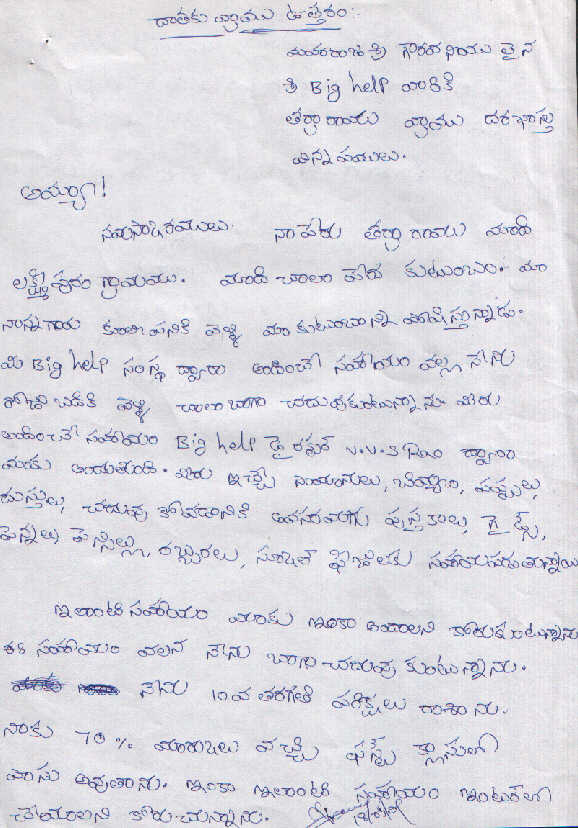 దాతకు వ్రాయు ఉత్తరం:-
మహారాజశ్రీ గౌరవనీయు లైన
శ్రీ Big help వారికి
వ్రాయు దరఖాస్తు
విన్నపములు.
అయ్యా!
నమస్కారములు. నా పేరు మాది
లక్ష్మీపురం గ్రామము. మాది చాలా పేద కుటుంబం. మా
నాన్నగారు కూలి పనికి వెళ్ళి మా కుటుంబాన్ని పోషిస్తున్నాడు.
మీ Big help సంస్థ ద్వారా అందించే సహాయం వల్ల నేను
రోజు బడికి వెళ్ళి చాలా బాగా చదువుకుంటున్నాను మీరు
అందించే సహాయం Big help డైరెక్టర్ ద్వారా
మాకు అందుతుంది. మీరు ఇచ్చే సాయములు, బియ్యం, పప్పులు,
దుస్తులు, చదువు కోవడానికి అవసరమగు పుస్తకాలు, గైడ్స్,
పెన్నులు పెన్సిల్లు, రబ్బరులు, స్కూల్ ఫీజులకు సహాయపడుతున్నాయి
ఇలాంటి సహాయం మాకు ఇంకా కావాలని కోరుకుంటున్నాను
ఈ సహాయం వలన నేను బాగా చదువు కుంటున్నాను.
నేను 10వ తరగతి పరీక్షలు రాశాను.
నాకు 70% మార్కులు వచ్చి ఫస్ట్ క్లాసులో
పాసు అవుతాను. ఇంకా ఇలాంటి సహాయం
చేయాలని కోరుచున్నాను.